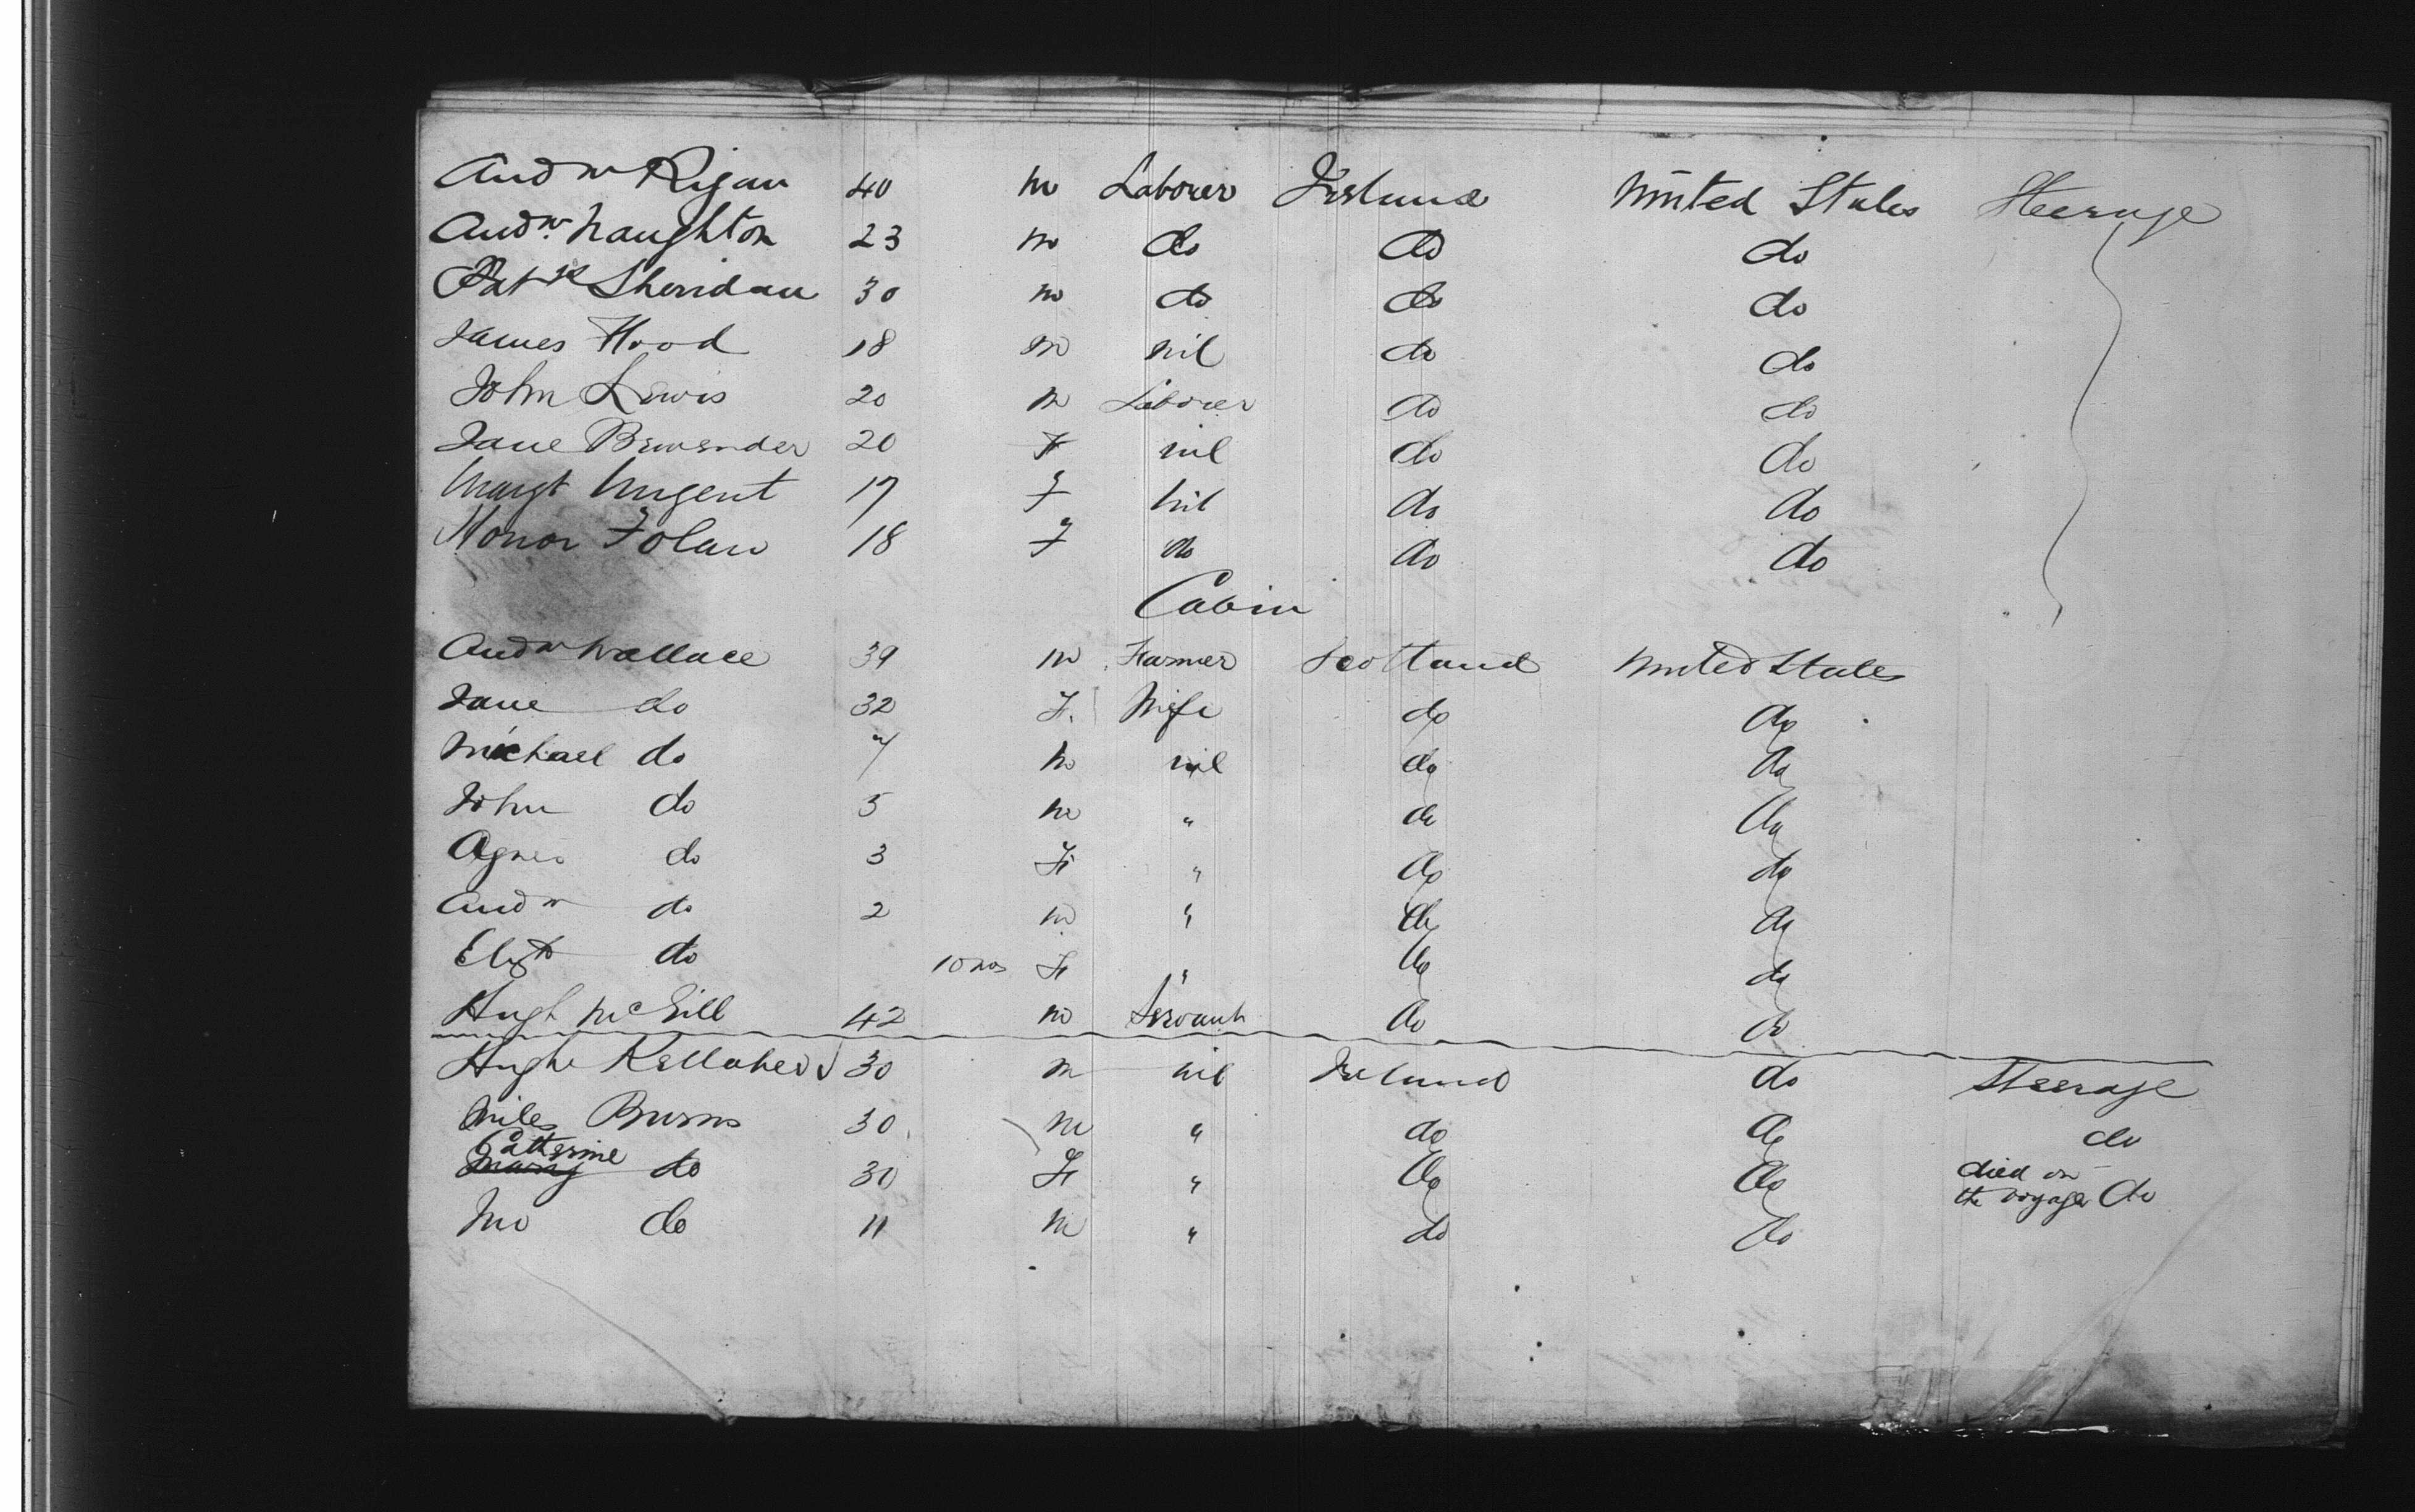 Andw Rigan 40 m Laborer Ireland United States Steerage
Andw. Naughton 23 m do do do
Patk Sheridan 30 m do do do
James Hood 18 m nil do do
John Lewis 20 m Laborer do do
Jane 20 F nil do do
Margt Nugent 17 F nil do do
Honor Folan 18 F do do do
Cabin
Andw Wallace 39 m Farmer Scotland United States
Jane do 32 F. Wife do do
Michael do 7 m nil do do
John do 5 m " do do
Agnes do 3 F " do do
Andw do 2 m " do do
Elizth do 10 mos F " do do
Hugh McGill 42 m Servant do do
Hugh 30 m nil Ireland do Steerage
Miles Burns 30 m " do do do
Catherine
Mary do 30 F " do do died on the voyage do
Jno do 11 m " do do